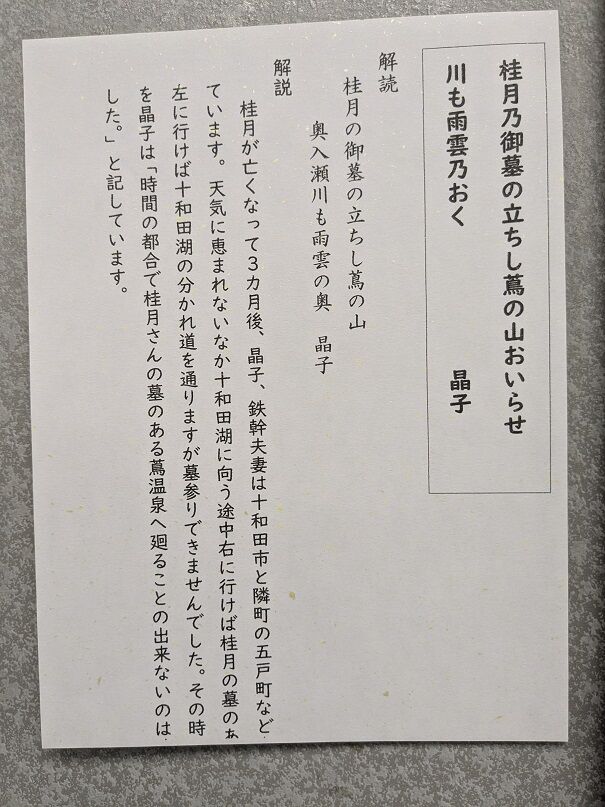 桂月乃御墓の立ちし蔦の山おいらせ
川も雨雲乃おく　晶子
解読
桂月の御墓の立ちし蔦の山
奥入瀬川も雨雲の奥　晶子
解説
桂月が亡くなって３カ月後、晶子、鉄幹夫妻は十和田市と隣町の五戸町など
ています。天気に恵まれないなか十和田湖に向う途中右に行けば桂月の墓のあ
左に行けば十和田湖の分かれ道を通りますが墓参りできませんでした。その時
を晶子は「時間の都合で桂月さんの墓のある蔦温泉へ廻ることの出来ないのは
した。」と記しています。